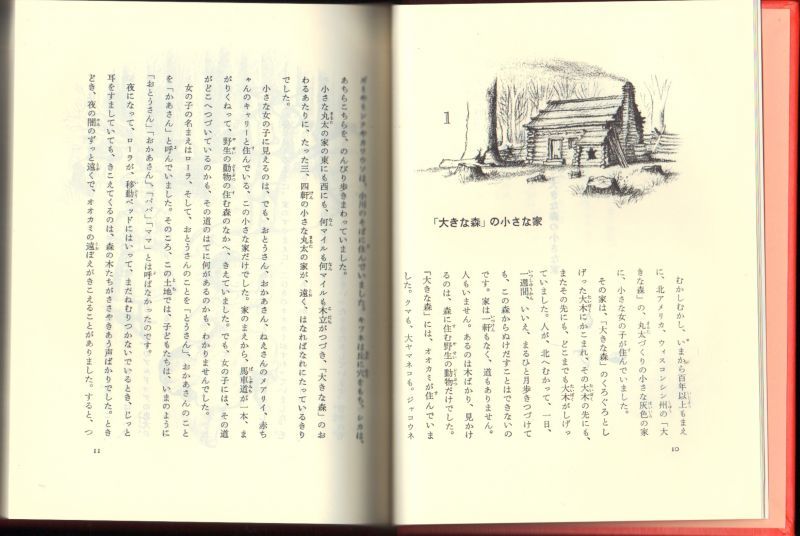 1
「大きな森」の小さな家
むかしむかし、いまから百年以上もまえ
に、北アメリカ、ウィスコンシン州の「大
きな森」の、丸太づくりの小さな灰色の家
に、小さな女の子が住んでいました。
その家は、「大きな森」のくろぐろとし
げった大木にかこまれ、その大木の先にも、
またその先にも、どこまでも大木がしげっ
ていました。人が、北へむかって、一日、
一週間、いいえ、まるひと月歩きつづけて
も、この森からぬけだすことはできないの
です。家は一軒もなく、道もありません。
人もいません。あるのは木ばかり、見かけ
るのは、森に住む野生の動物だけでした。
「大きな森」には、オオカミが住んでいま
した。クマも、大ヤマネコも。ジャコウネ
10
ズミやミンクやカワウソは、小川のそばに住んでいました。キツネは丘に穴をもち、シカは、
あちらこちらを、のんびり歩きまわっていました。
小さな丸太の家の東にも西にも、何マイルも何マイルも木立がつづき、「大きな森」のお
わるあたりに、たった三、四軒の小さな丸太の家が、遠く、はなればなれにたっているきり
でした。
小さな女の子に見えるのは、でも、おとうさん、おかあさん、ねえさんのメアリイ、赤ち
ゃんのキャリーと住んでいる、この小さな家だけでした。家のまえから、馬車道が一本、ま
がりくねって、野生の動物の住む森のなかへ、きえていました。でも、女の子には、その道
がどこへつづいているのかも、その道のはてに何があるのかも、わかりませんでした。
女の子の名まえはローラ、そして、おとうさんのことを「とうさん」、おかあさんのこと
を「かあさん」と呼んでいました。そのころ、この土地では、子どもたちは、いまのように
「おとうさん」「おかあさん」、「パパ」「ママ」とは呼ばなかったのです。
夜になって、ローラが、移動ベッドにはいって、まだねむりつかないでいるとき、じっと
耳をすましていても、きこえてくるのは、森の木たちがささやきあう声ばかりでした。とき
どき、夜の闇のずっと遠くで、オオカミの遠ぼえがきこえることがありました。すると、つ
11